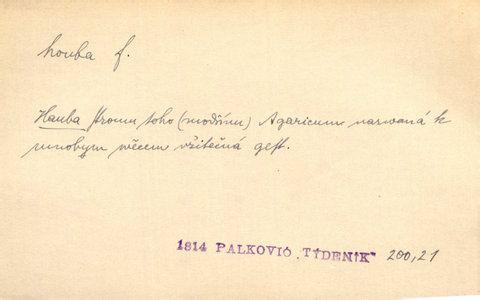 houba f.
Hauba stromu toho (modřínu) Agaricum nazwaná k
mnohym wěcem vžitečná gest.
1814 PALKOVIČ „TÝDENÍK" 200,21